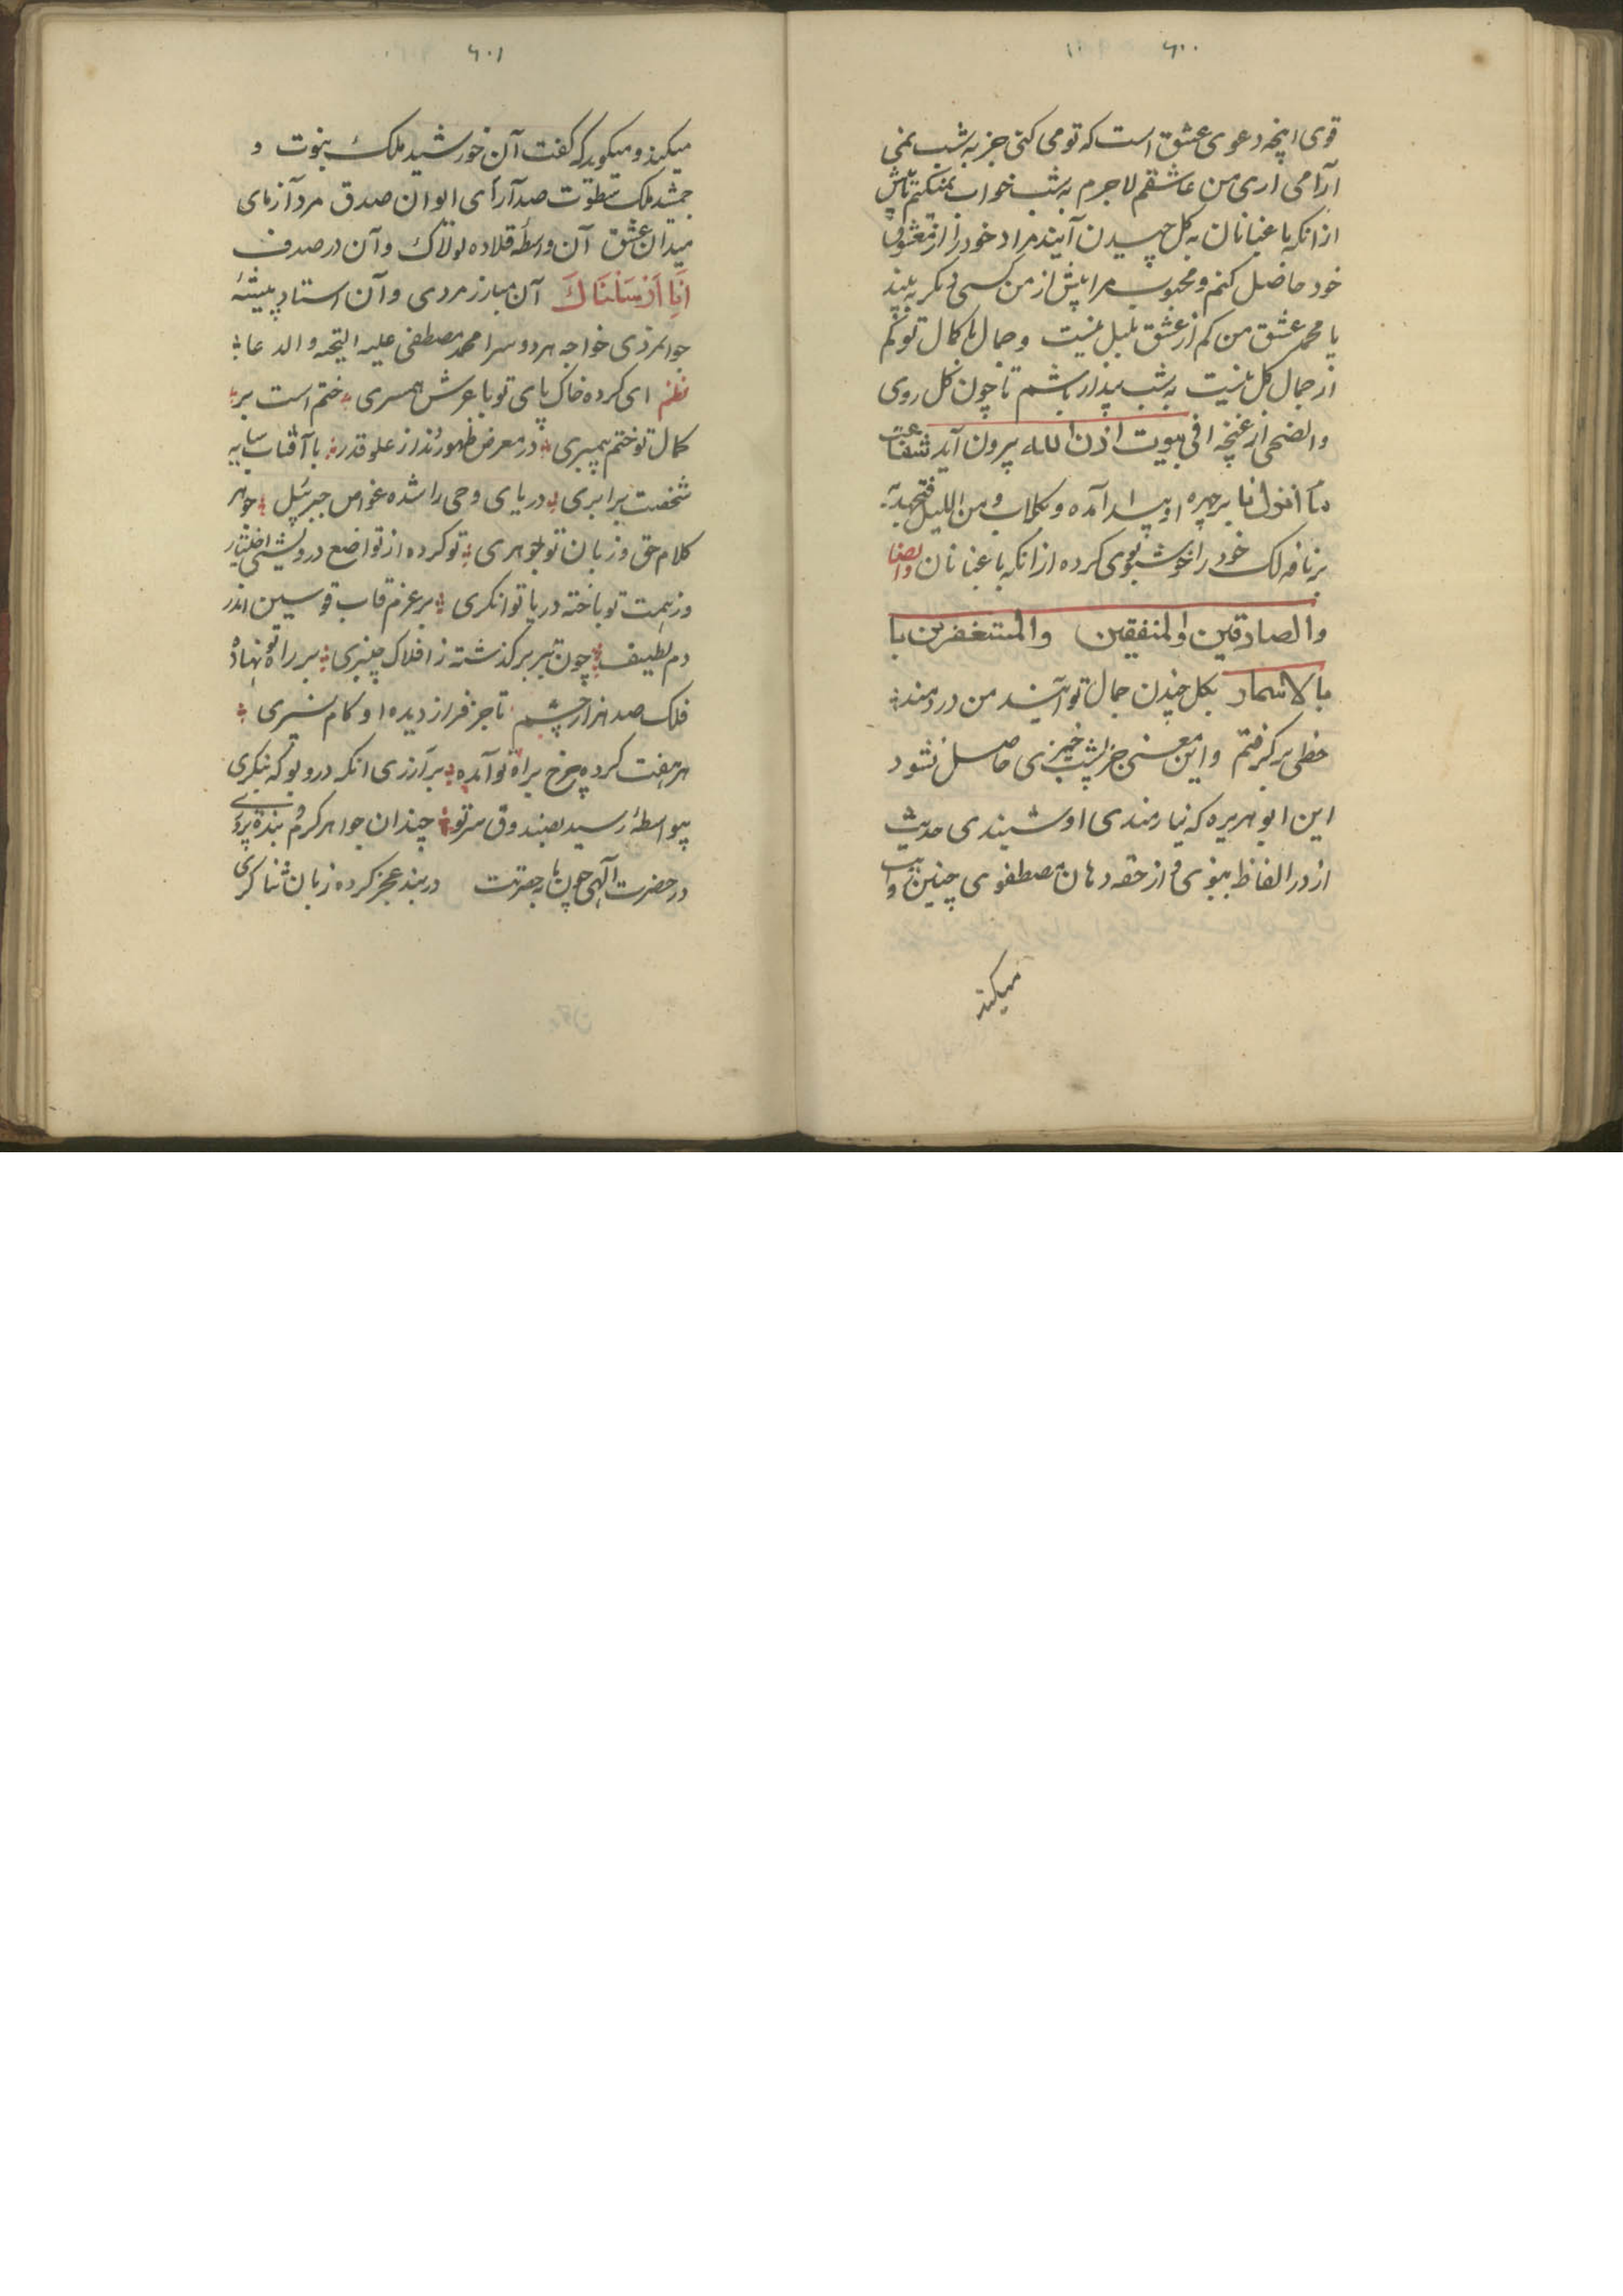 ۶۰۰
قوی اینچه دعوی عشق است که تو می کنی جز به شب نمی
آرامی اری من عاشقم لاجرم به شب خواب نمیکنم تا پیش
ازانکه باغبانان به کل چیدن آیند مراد خود را از معشوق
خود حاصل کنم و محبوب مرا پیش از من کسی دیکر نه بیند
یا محمد عشق من کم از عشق بلبل نیست و جمال با کمال تو کم
از جمال کل نیست به شب بیدار باشم تا چون کل روی
والضحی از غنچه افی بیوت اذن الله بیرون آید
ما انزلنا بر چهره او پیدا آمده و بکلاب و من اللیل فتهجد به
بر نافه لک خود را خوشبوی کرده ازانکه باغبانان
والصادقین والمنفقین والمستغفرین با
بالاسحار بکل چیدن جمال تو آیند من دردمند
حظی بر کرفتم و این معنی جز بشب خیزی حاصل نشود
این ابو هریره که نیازمندی او شنیدی حدیث
از در الفاظ نبوی و از حقه دهان مصطفوی چنین روایت
میکند
۶۰۱
میکند و میکوید که کفت آن خورشید ملک نبوت و
جمشید ملک سطوت صدر آرای ایوان صدق مرد آزمای
میدان عشق آن واسطه قلاده لولاک و آن در صدف
انا ارسلناک آن مبارز مردی و آن استاد پیشهٔ
جوانمردی خواجه هر دو سرا محمد مصطفی علیه التحیه والدعا
نظم ای کرده خاک پای تو با عرش همسری ختم است بر
کمال تو ختم پیمبری در معرض ظهور نزد از علو قدر با آفتاب سایه
شخصت برابری دریای وحی را شده غواص جبرئیل جوهر
کلام حق و زبان تو جوهری تو کرده از تواضع درویشی اختیار
وز همت تو باخته دریا توانکری بر عزم قاب قوسین اندر
دم لطیف چون تیر بر کذشته ز افلاک چنبری بر راه تو نهاده
فلک صد هزار چشم تا جز فراز دیده او کام نسپری
هر هفت کرده چرخ براه تو آمده بر آرزوی انکه درو بو که بنکری
بیواسطه رسید بصندوق سر تو چندان جواهر کرم بنده پروری
در حضرت آلهی چون ما بحضرتت در بند عجز کرده زبان ثنا کری